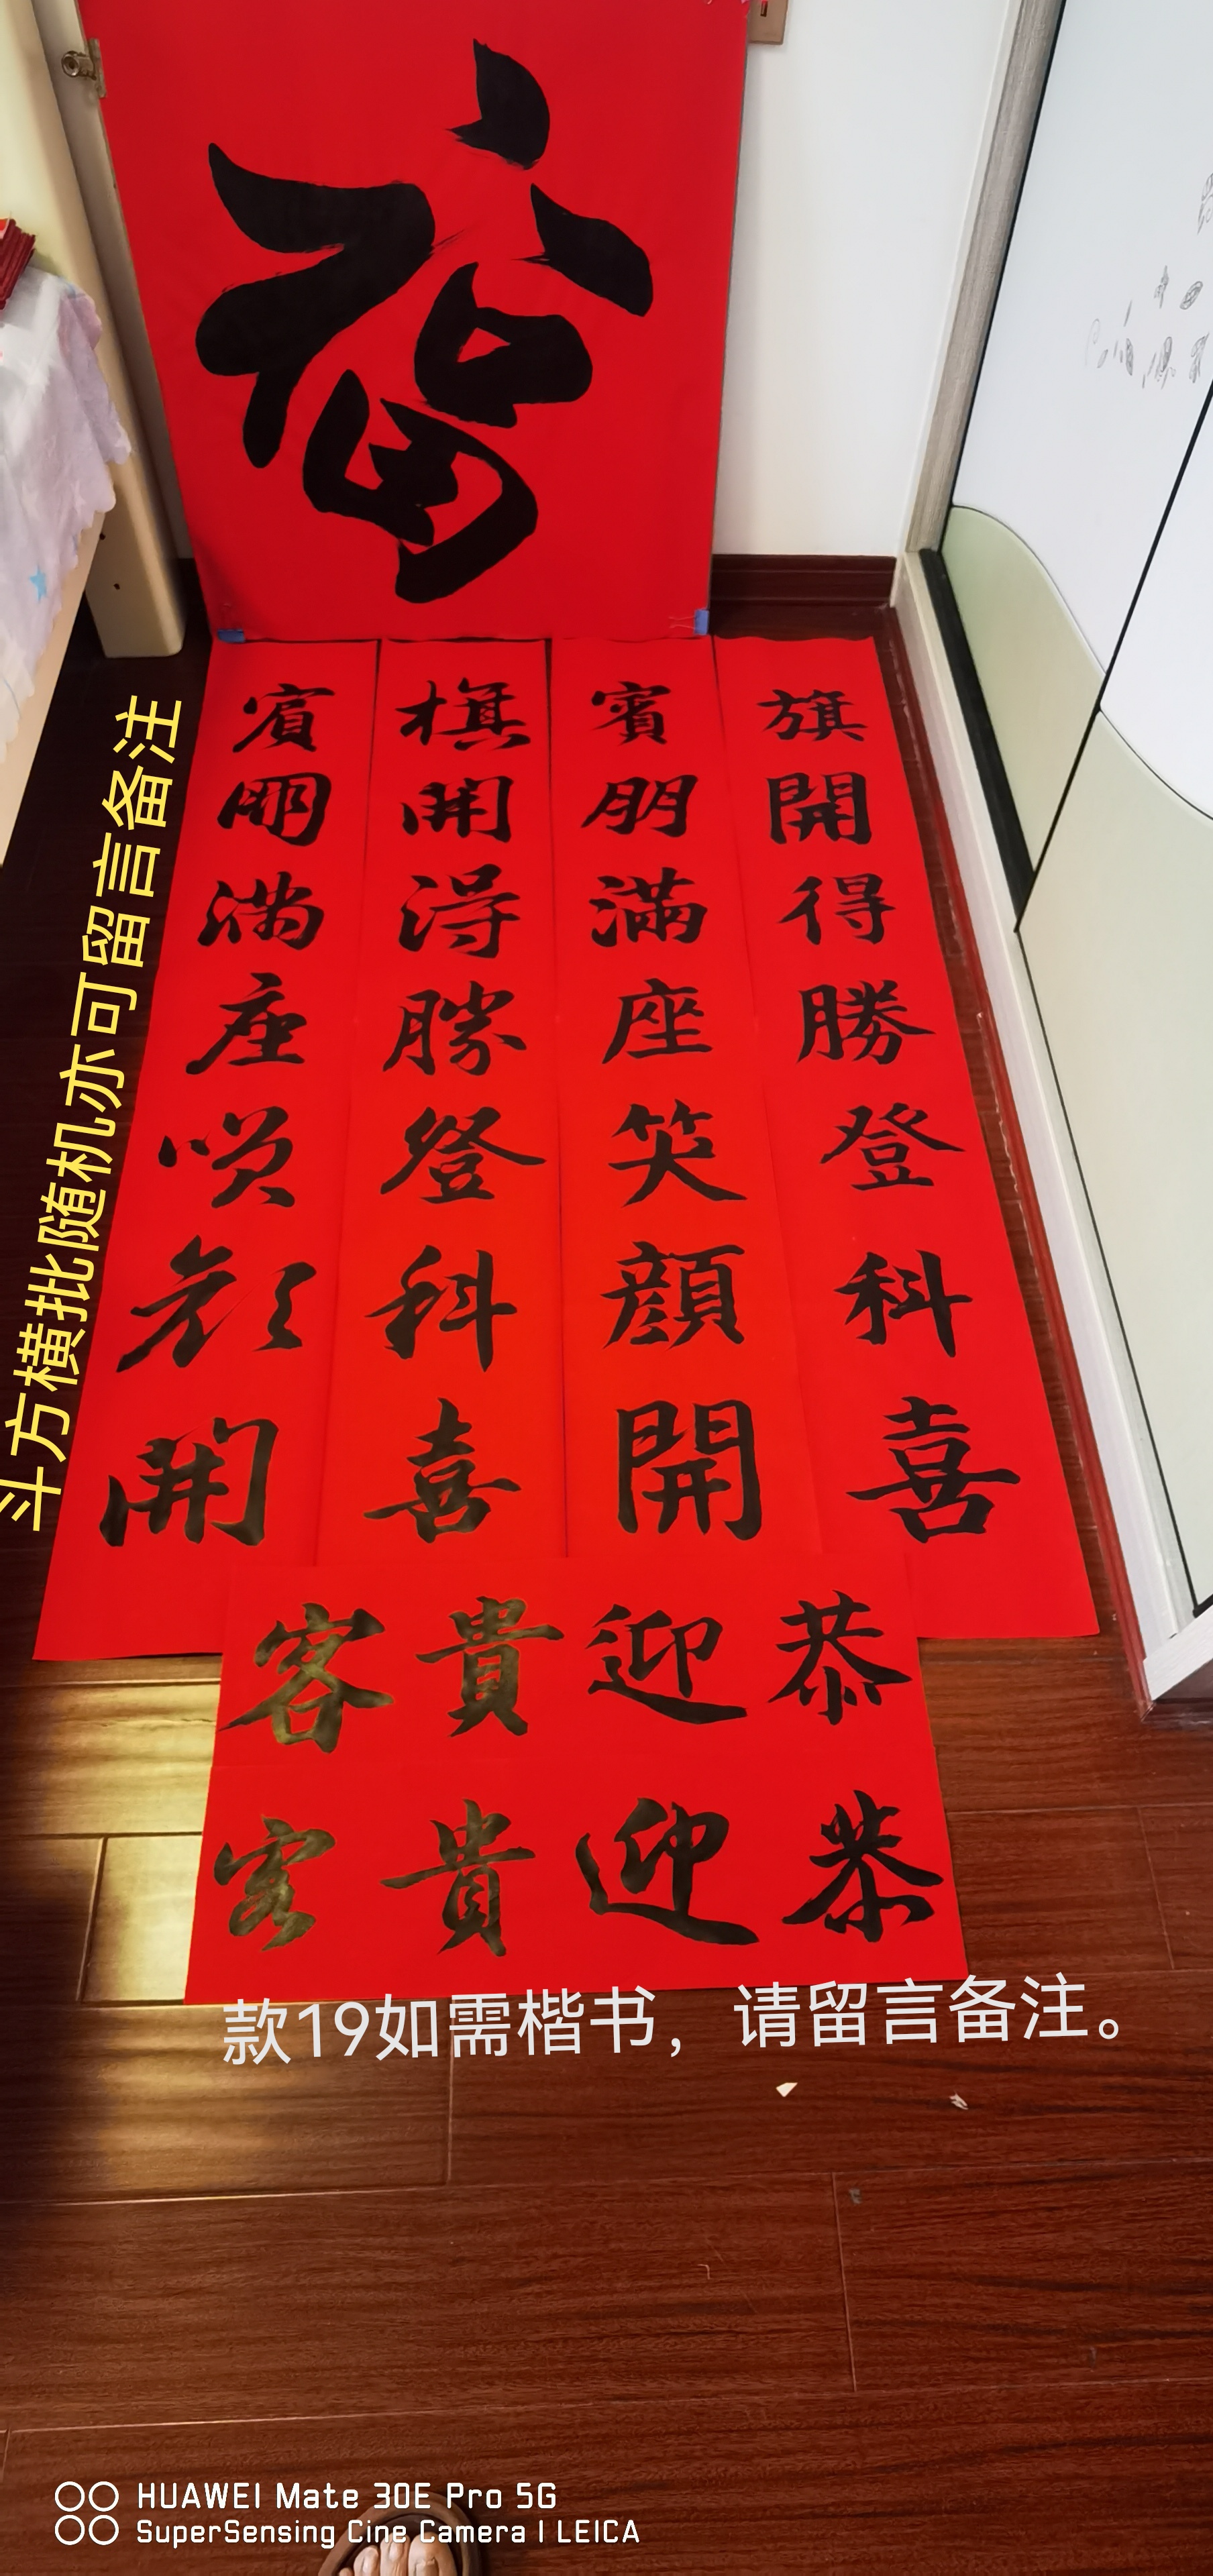 福
旗開得勝登科喜
賓朋滿座笑顔開
旗開得勝登科喜
賓朋满座笑颜開
恭迎貴客
恭迎貴客
斗方横批随机亦可留言备注
款19如需楷书，请留言备注。
HUAWEI Mate 30E Pro 5G
SuperSensing Cine Camera | LEICA